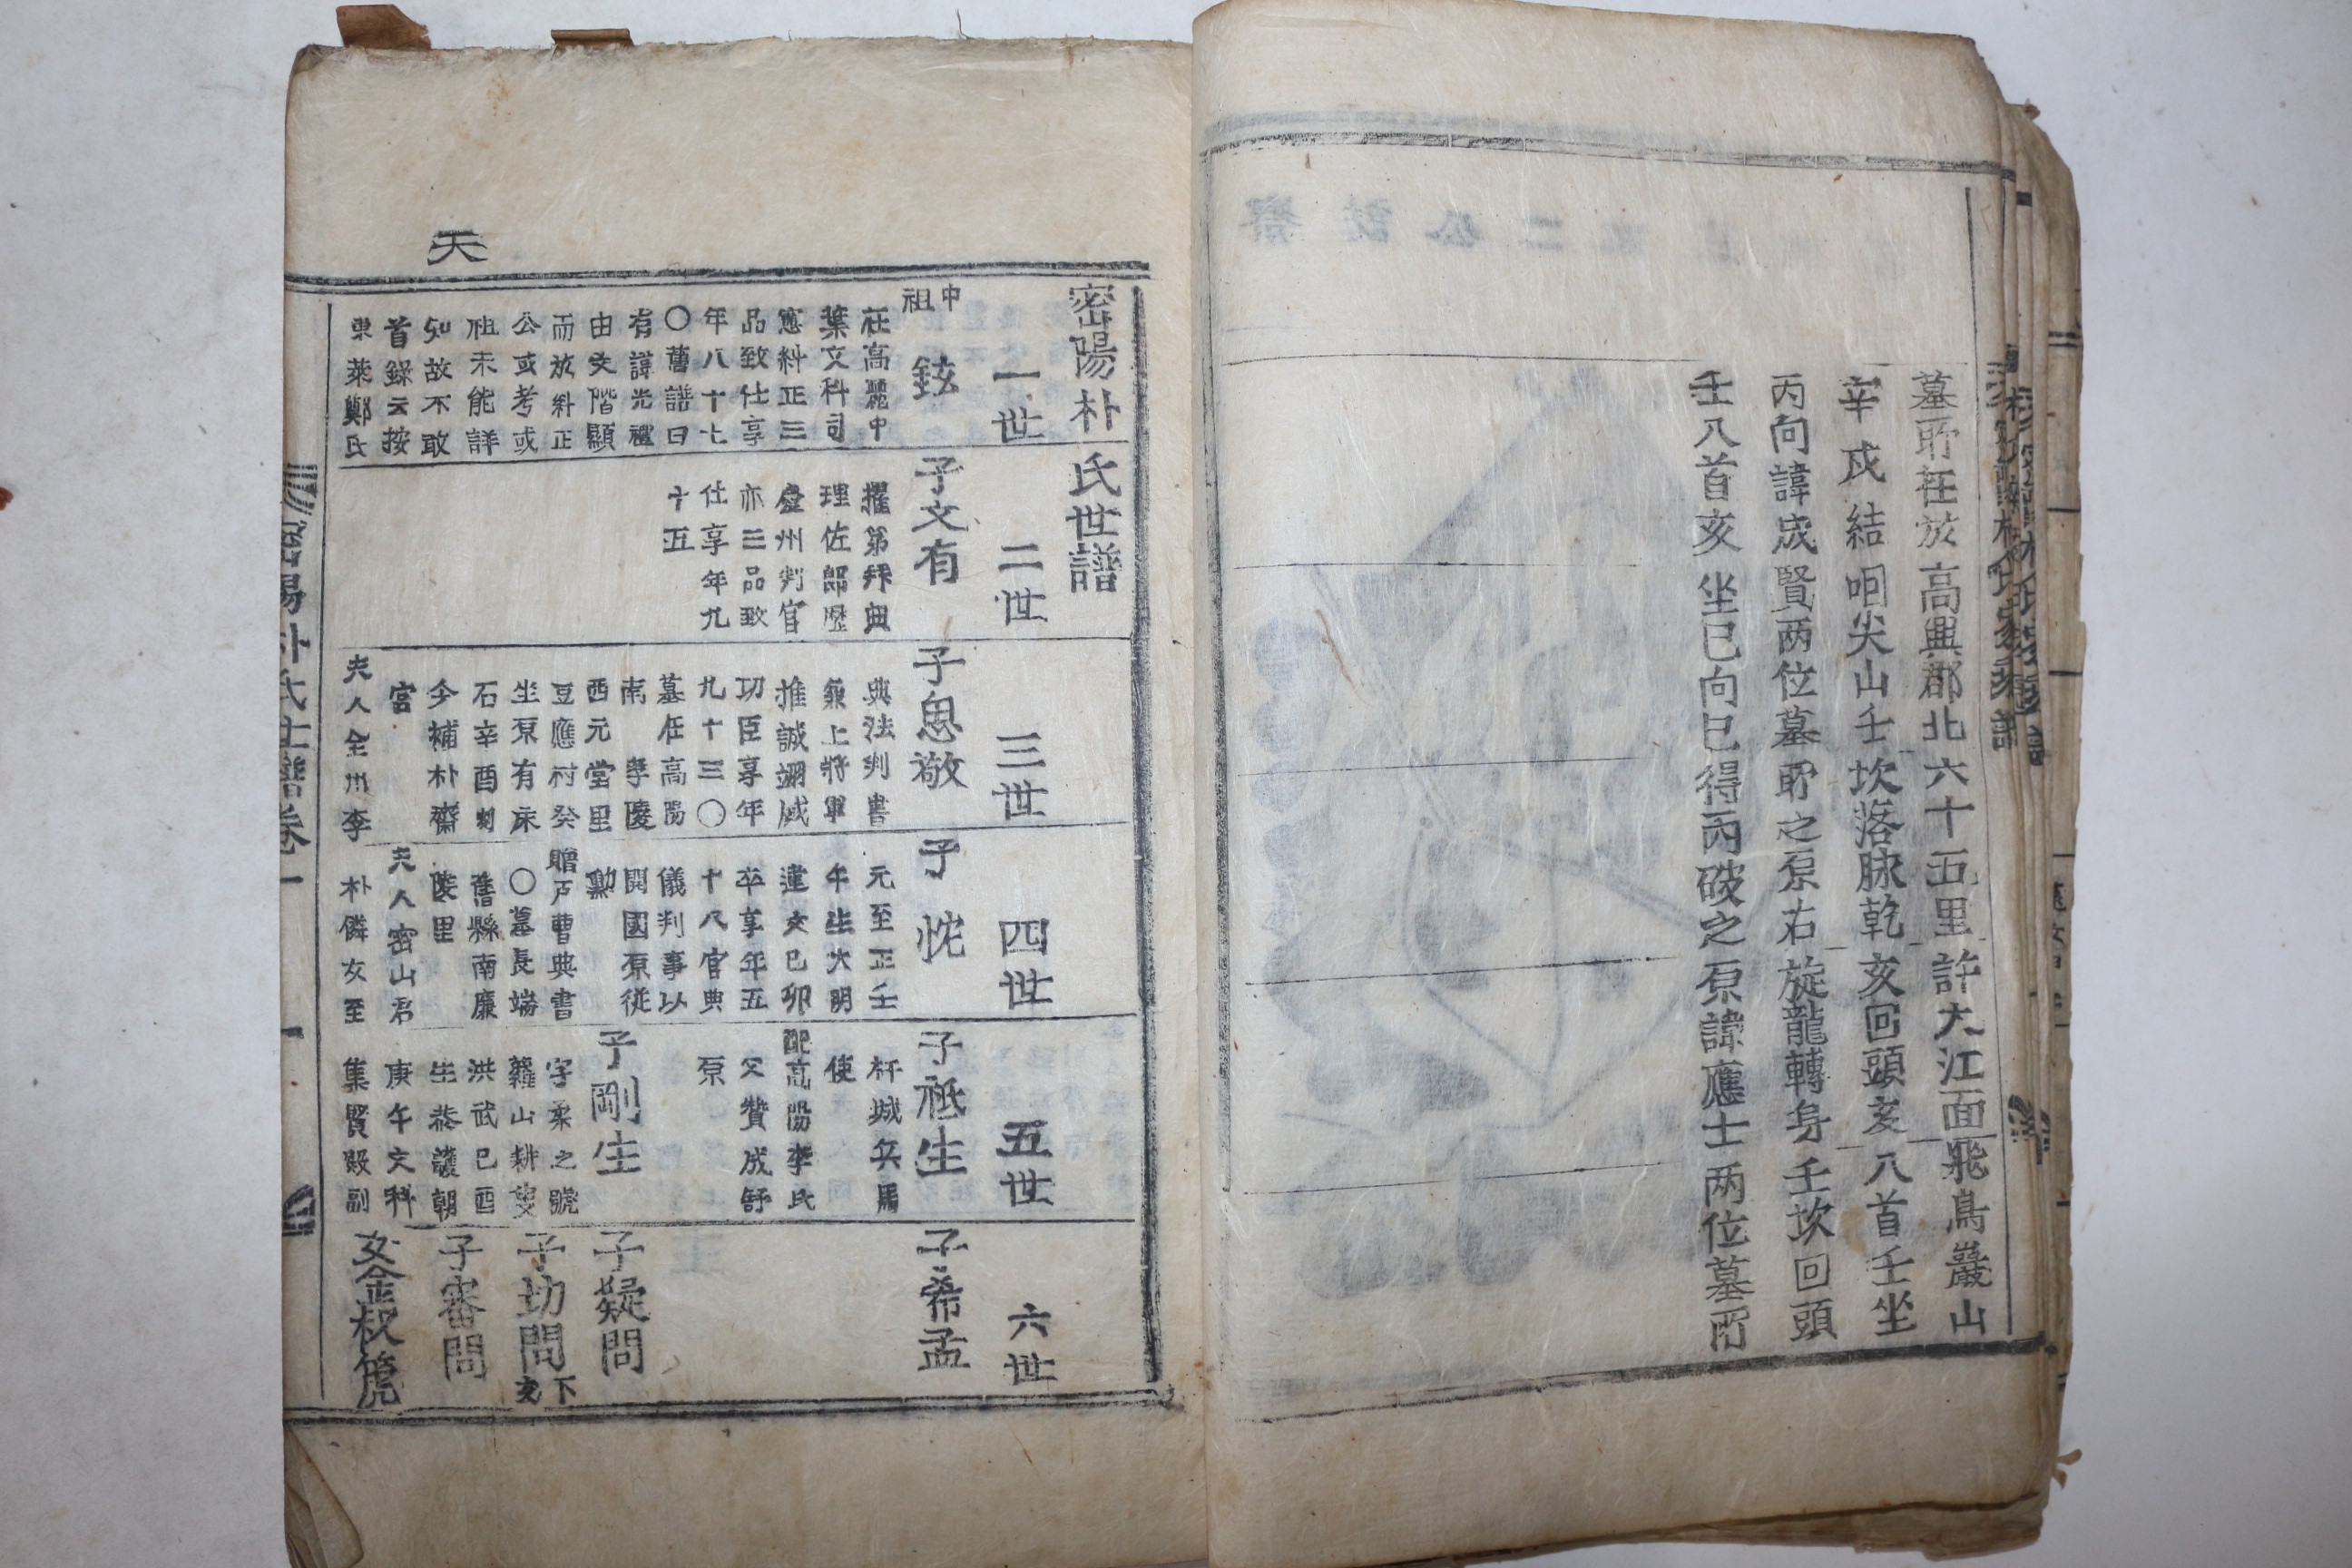 墓所在於高興郡北六十五里許大江面飛鳥巖山
辛戌結咽尖山壬坎落脉乾亥回頭亥八首壬坐
丙向諱成賢两位墓所之原右旋龍轉身壬坎回頭
壬八首亥坐巳向巳得丙破之原諱應士两位墓所
天
密陽朴氏世譜
一世
中祖
鉉
在高麗中
葉文科司
憲糾正三
品致仕享
年八十七
〇舊譜曰
有諱光禮
由文階顯
而於糾正
公或考或
祖未能詳
知故不敢
首錄云按
東萊鄭氏
二世
子文有
擢第拜典
理佐郎歷
慶州判官
亦三品致
仕享年九
十五
三世
子思敬
典法判書
兼上將軍
推誠翊戴
功臣享年
九十三〇
墓在高陽
南 孝陵
西元堂里
豆應村癸
坐原有床
石辛酉刱
今補朴齋
宮
夫人全州李
四世
子忱
元至正壬
午生大明
建文己卯
卒享年五
十八官典
儀判事以
開國原従
勳
贈戶曹典書
〇墓長端
舊縣南廉
陵里
夫人密山君
朴隣女至
五世
子祗生
杆城兵馬
使
配高陽李氏
父贊成舒
原
子剛生
字柔之號
蘿山耕叟
洪武己酉
生恭讓朝
庚午文科
集賢殿副
六世
子希孟
子疑問
子切問
下文
子審問
女金叔篪
密陽朴氏世譜卷一